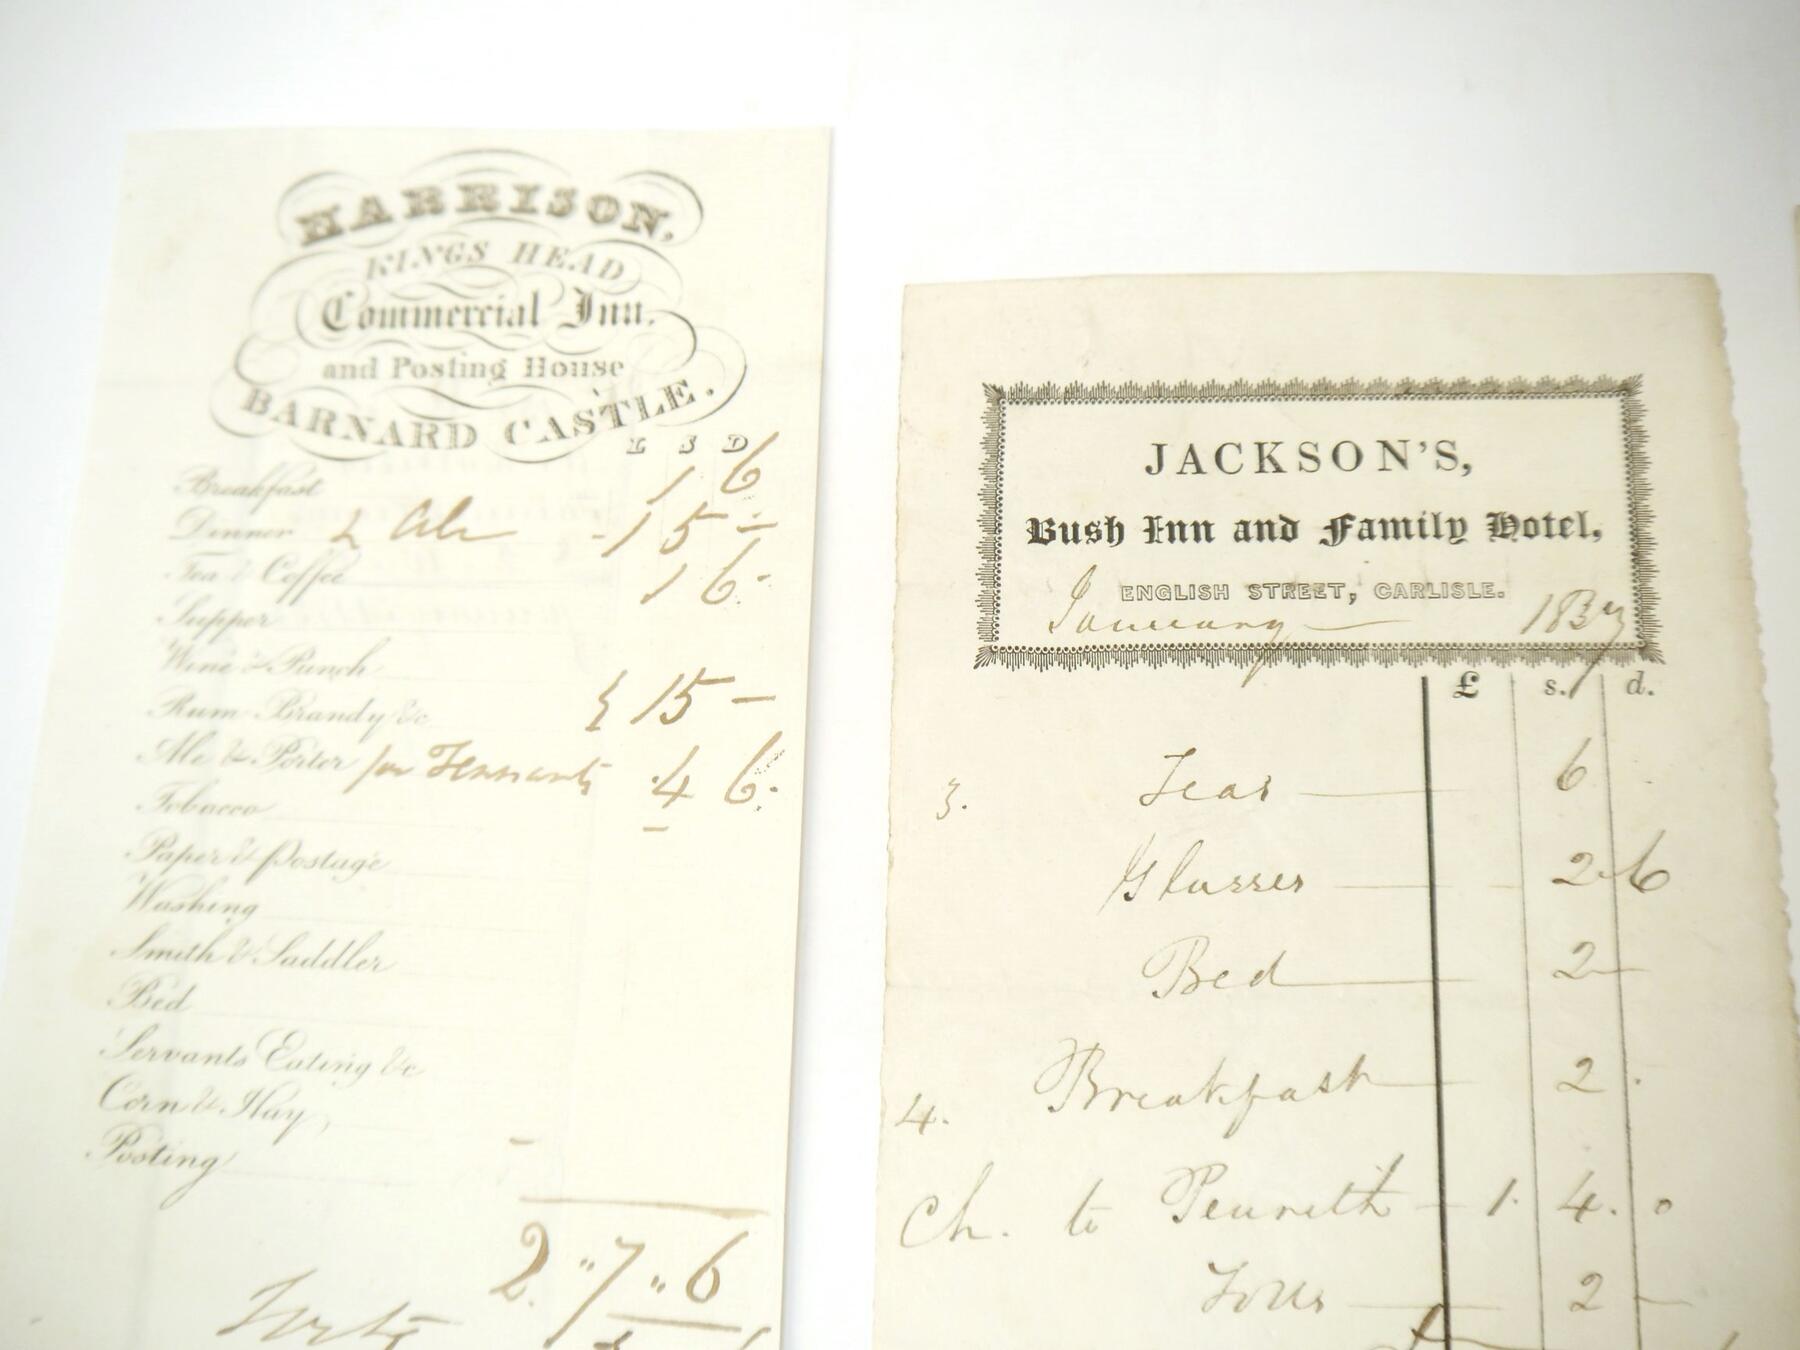 HARRISON,
KINGS HEAD
Commercial Inn.
and Posting House
BARNARD CASTLE.
L S D
Breakfast 1 6
Dinner & Ale - 15 -
Tea & Coffee 1 6
Supper
Wine & Punch
Rum Brandy &c } 15 -
Ale & Porter for Tennants 4 6
Tobacco
Paper & Postage
Washing
Smith & Saddler
Bed
Servants Eating &c
Corn & Hay,
Posting
2 " 7 " 6
JACKSON'S,
Bush Inn and Family Hotel,
ENGLISH STREET, CARLISLE.
January 1837
£ s. d.
3. Teas 6
Glasses 2 6
Bed 2 -
4. Breakfast 2
Ch. to Penrith 1. 4. 0
Tolls 2 -